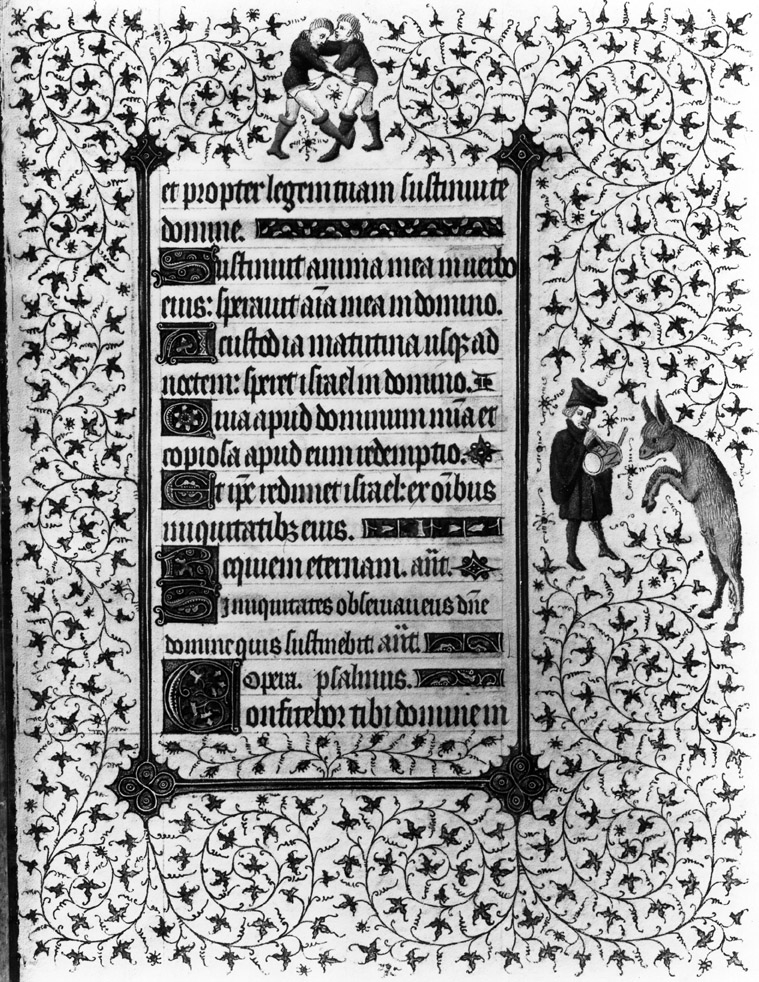 et propter legem tuam sustinui te
domine.
Sustinuit anima mea in uerbo
eius: sperauit aĩa mea in domino.
A custodia matutina usqꝫ ad
noctem: speret israel in domino.
Quia apud dominum mĩa et
copiosa apud eum redemptio.
Et ip̃e redimet israel: ex oĩbus
iniquitatibꝫ eius.
Requiem eternam. añt.
Si iniquitates obseruaueris dñe
domine quis sustinebit. añt.
Opera. psalmus.
Confitebor tibi domine in